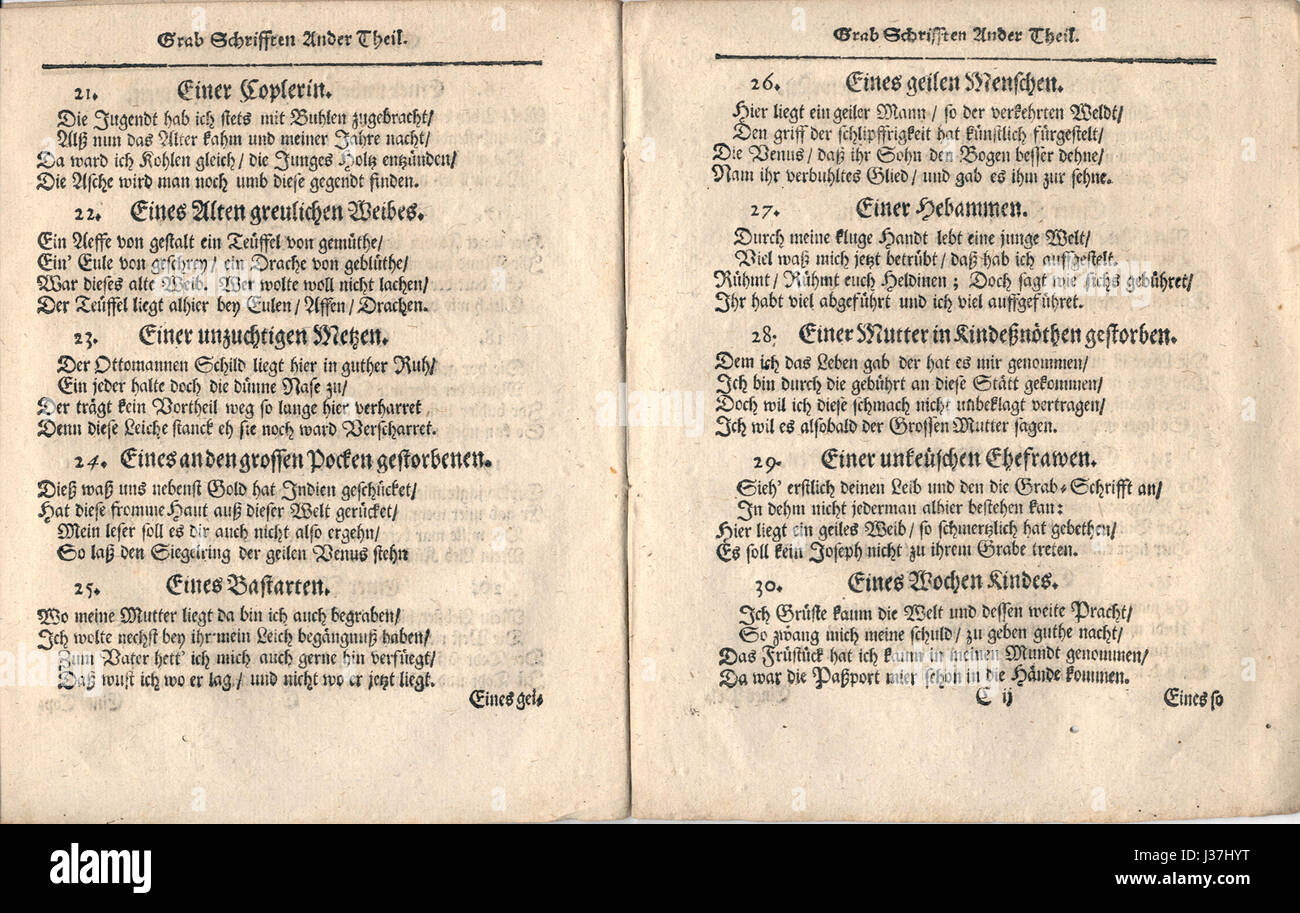 Grab Schrifften Ander Theil.
21. Einer Coplerin.
Die Jugendt hab ich stets mit Buhlen zugebracht/
Alß nun das Alter kahm und meiner Jahre nacht/
Da ward ich Kohlen gleich/ die Junges Holtz entzünden/
Die Asche wird man noch umb diese gegendt finden.
22. Eines Alten greulichen Weibes.
Ein Aeffe von gestalt ein Teüffel von gemüthe/
Ein' Eule von geschrey/ ein Drache von geblüthe/
War dieses alte Weib. Wer wolte woll nicht lachen/
Der Teüffel liegt alhier bey Eulen/ Affen/ Drachen.
23. Einer unzuchtigen Metzen.
Der Ottomannen Schild liegt hier in guther Ruh/
Ein jeder halte doch die dünne Nase zu/
Der trägt kein Vortheil weg so lange hier verharret
Denn diese Leiche stanck eh sie noch ward Verscharret.
24. Eines an den grossen Pocken gestorbenen.
Dieß waß uns nebenst Gold hat Indien geschücket/
Hat diese fromme Haut auß dieser Welt gerücket/
Mein leser soll es dir auch nicht also ergehn/
So laß den Siegelring der geilen Venus stehn
25. Eines Bastarten.
Wo meine Mutter liegt da bin ich auch begraben/
Ich wolte nechst bey ihr mein Leich begängnuß haben/
Zum Vater hett' ich mich auch gerne hin verfüegt/
Daß wust ich wo er lag/ und nicht wo er jetzt liegt.
Eines gei-
Grab Schrifften Ander Theil.
26. Eines geilen Menschen.
Hier liegt ein geiler Mann/ so der verkehrten Weldt/
Den griff der schlipffrigkeit hat künstlich fürgestelt/
Die Venus/ daß ihr Sohn den Bogen besser dehne/
Nam ihr verbuhltes Glied/ und gab es ihm zur sehne.
27. Einer Hebammen.
Durch meine kluge Handt lebt eine junge Welt/
Viel waß mich jetzt betrübt/ daß hab ich auffgestelt.
Rühmt/ Rühmt euch Heldinen; Doch sagt wie sichs gebühret/
Ihr habt viel abgeführt und ich viel auffgeführet.
28. Einer Mutter in Kindeßnöthen gestorben.
Dem ich das Leben gab der hat es mir genommen/
Ich bin durch die gebührt an diese Stätt gekommen/
Doch wil ich diese schmach nicht unbeklagt vertragen/
Ich wil es alsobald der Grossen Mutter sagen.
29. Einer unkeüschen Ehefrawen.
Sieh' erstlich deinen Leib und den die Grab-Schrifft an/
In dehm nicht jederman alhier bestehen kan:
Hier liegt ein geiles Weib/ so schmertzlich hat gebethen/
Es soll kein Joseph nicht zu ihrem Grabe treten.
30. Eines Wochen Kindes.
Ich Grüste kaum die Welt und dessen weite Pracht/
So zwang mich meine schuld/ zu geben guthe nacht/
Das Früstück hat ich kaum in meinen Mundt genommen/
Da war die Paßport mier schon in die Hände kommen.
C ij
Eines so
alamy
Image ID: J37HYT
www.alamy.com